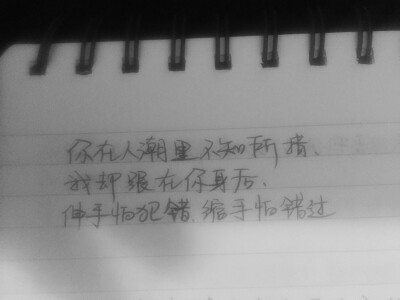 你在人潮里不知所措、
我却跟在你身后、
伸手怕犯错.缩手怕错过